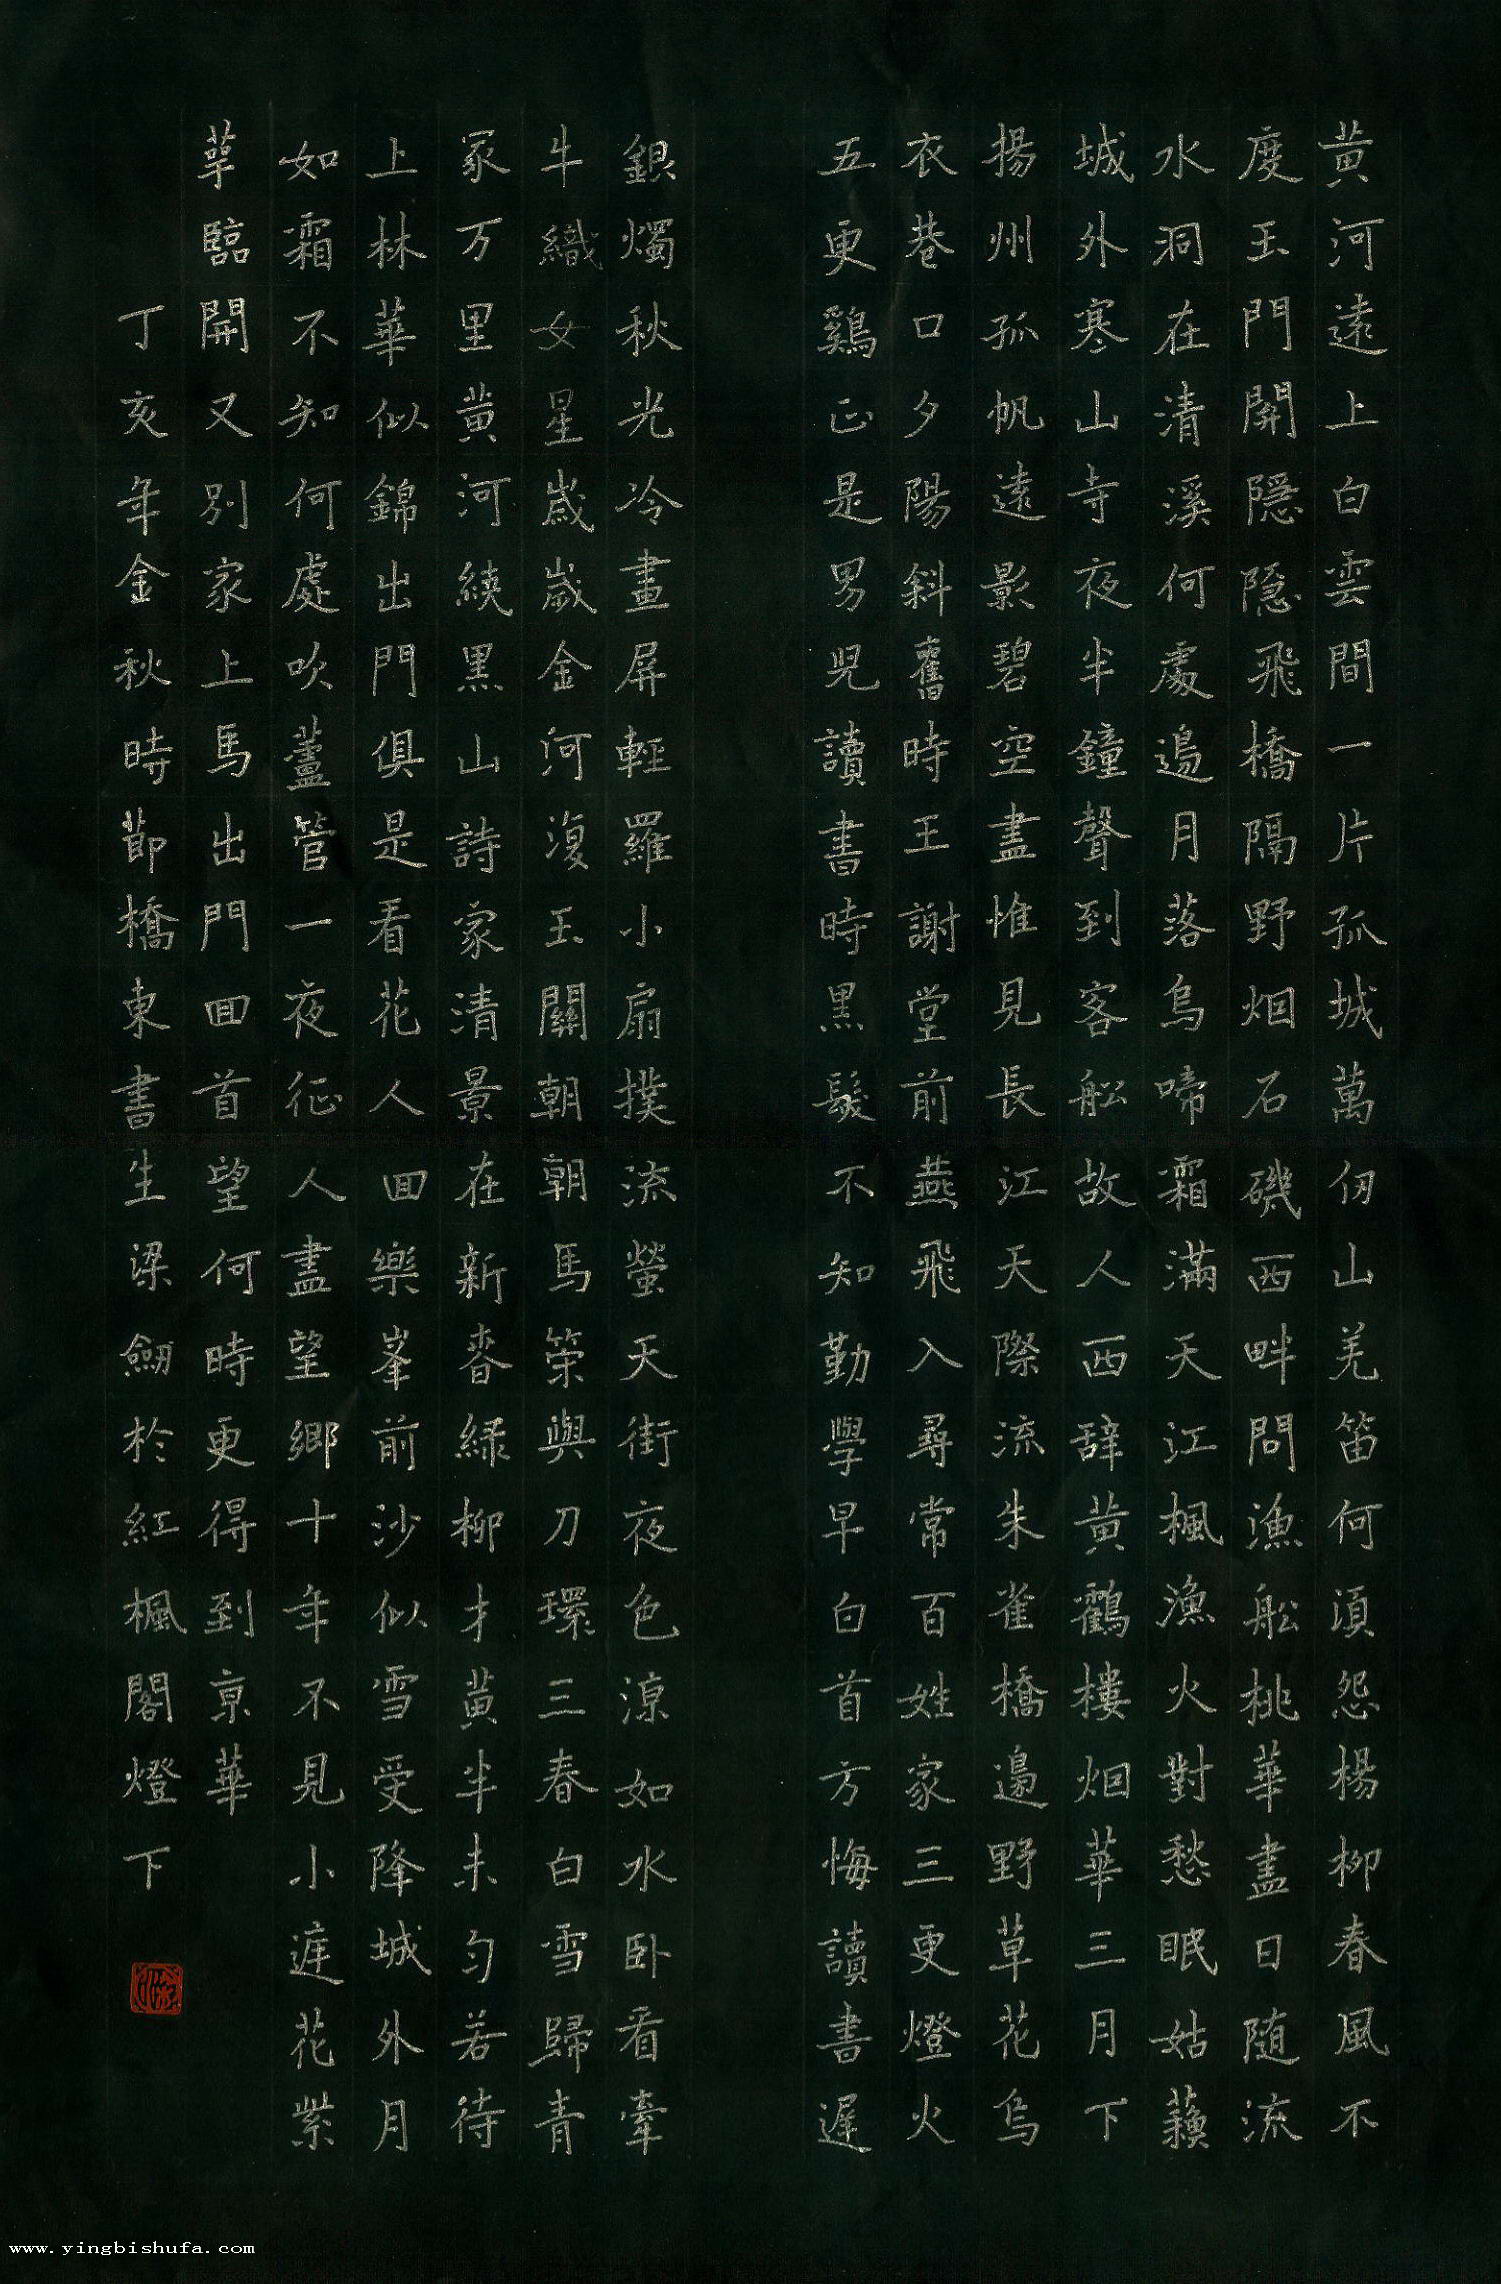 黄河遠上白雲間一片孤城萬仞山羌笛何須怨楊柳春風不
度玉門關隱隱飛橋隔野烟石磯西畔問漁船桃華盡日随流
水洞在清溪何處邊月落烏啼霜滿天江楓漁火對愁眠姑蘇
城外寒山寺夜半鐘聲到客船故人西辞黄鶴樓烟華三月下
揚州孤帆遠影碧空盡惟見長江天際流朱雀橋邊野草花烏
衣巷口夕陽斜舊時王謝堂前燕飛入尋常百姓家三更燈火
五更鷄正是男兒讀書時黑髮不知勤學早白首方悔讀書遲
銀燭秋光冷畫屏輕羅小扇撲流螢天街夜色凉如水卧看牽
牛織女星歲歲金河復玉關朝朝馬策與刀環三春白雪歸青
冢万里黄河繞黑山詩家清景在新春緑柳才黄半未匀若待
上林華似錦出門俱是看花人回樂峯前沙似雪受降城外月
如霜不知何處吹蘆管一夜征人盡望鄉十年不見小庭花紫
萼臨開又別家上馬出門回首望何時更得到京華
丁亥年金秋時節橋東書生梁劒於紅楓閣燈下
www.yingbishufa.com